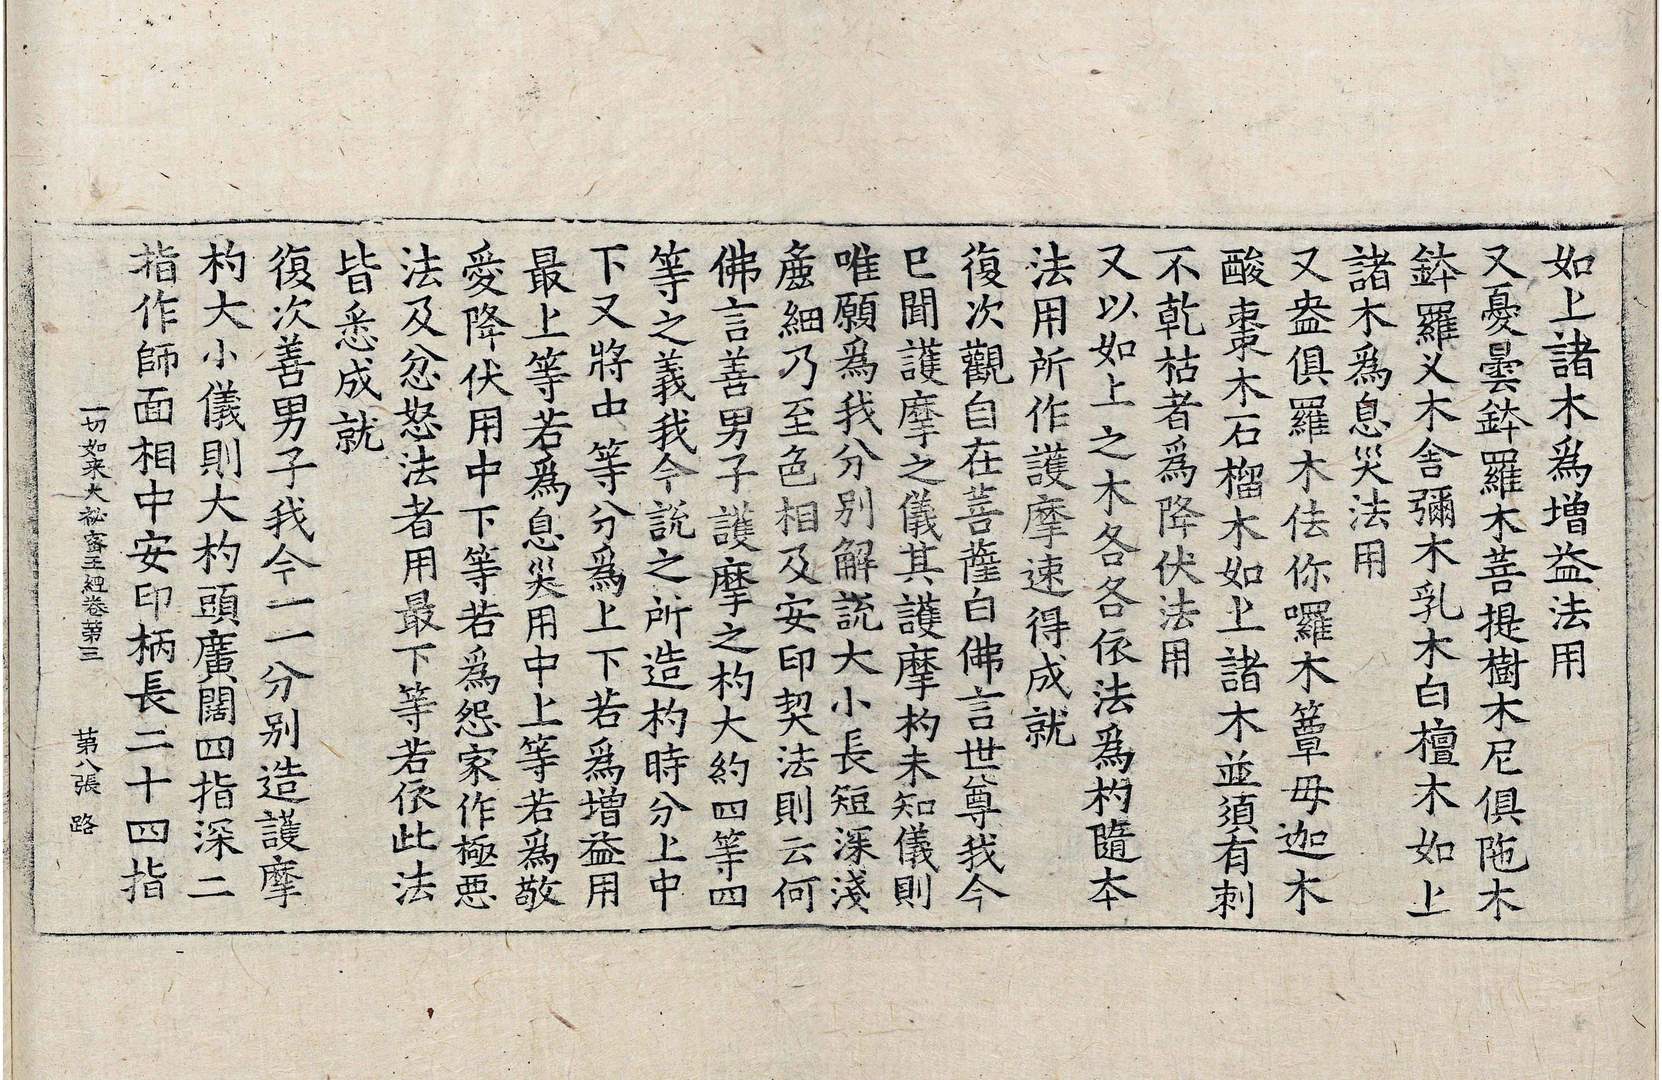 如上諸木爲增益法用
又憂曇鉢羅木菩提樹木尼俱陁木
鉢羅义木舍彌木乳木白檀木如上
諸木爲息災法用
又盎俱羅木佉你囉木簟毋迦木
酸棗木石榴木如上諸木並須有刺
不乾枯者爲降伏法用
又以如上之木各各依法爲杓隨本
法用所作護摩速得成就
復次觀自在菩薩白佛言世尊我今
已聞護摩之儀其護摩杓未知儀則
唯願爲我分别解說大小長短深淺
麁細乃至色相及安印契法則云何
佛言善男子護摩之杓大約四等四
等之義我今說之所造杓時分上中
下又將中等分爲上下若爲增益用
最上等若爲息災用中上等若爲敬
愛降伏用中下等若爲怨家作極惡
法及忿怒法者用最下等若依此法
皆悉成就
復次善男子我今一一分别造護摩
杓大小儀則大杓頭廣闊四指深二
指作師面相中安印柄長二十四指
一切如来大祕密王經卷第三 第八張 路